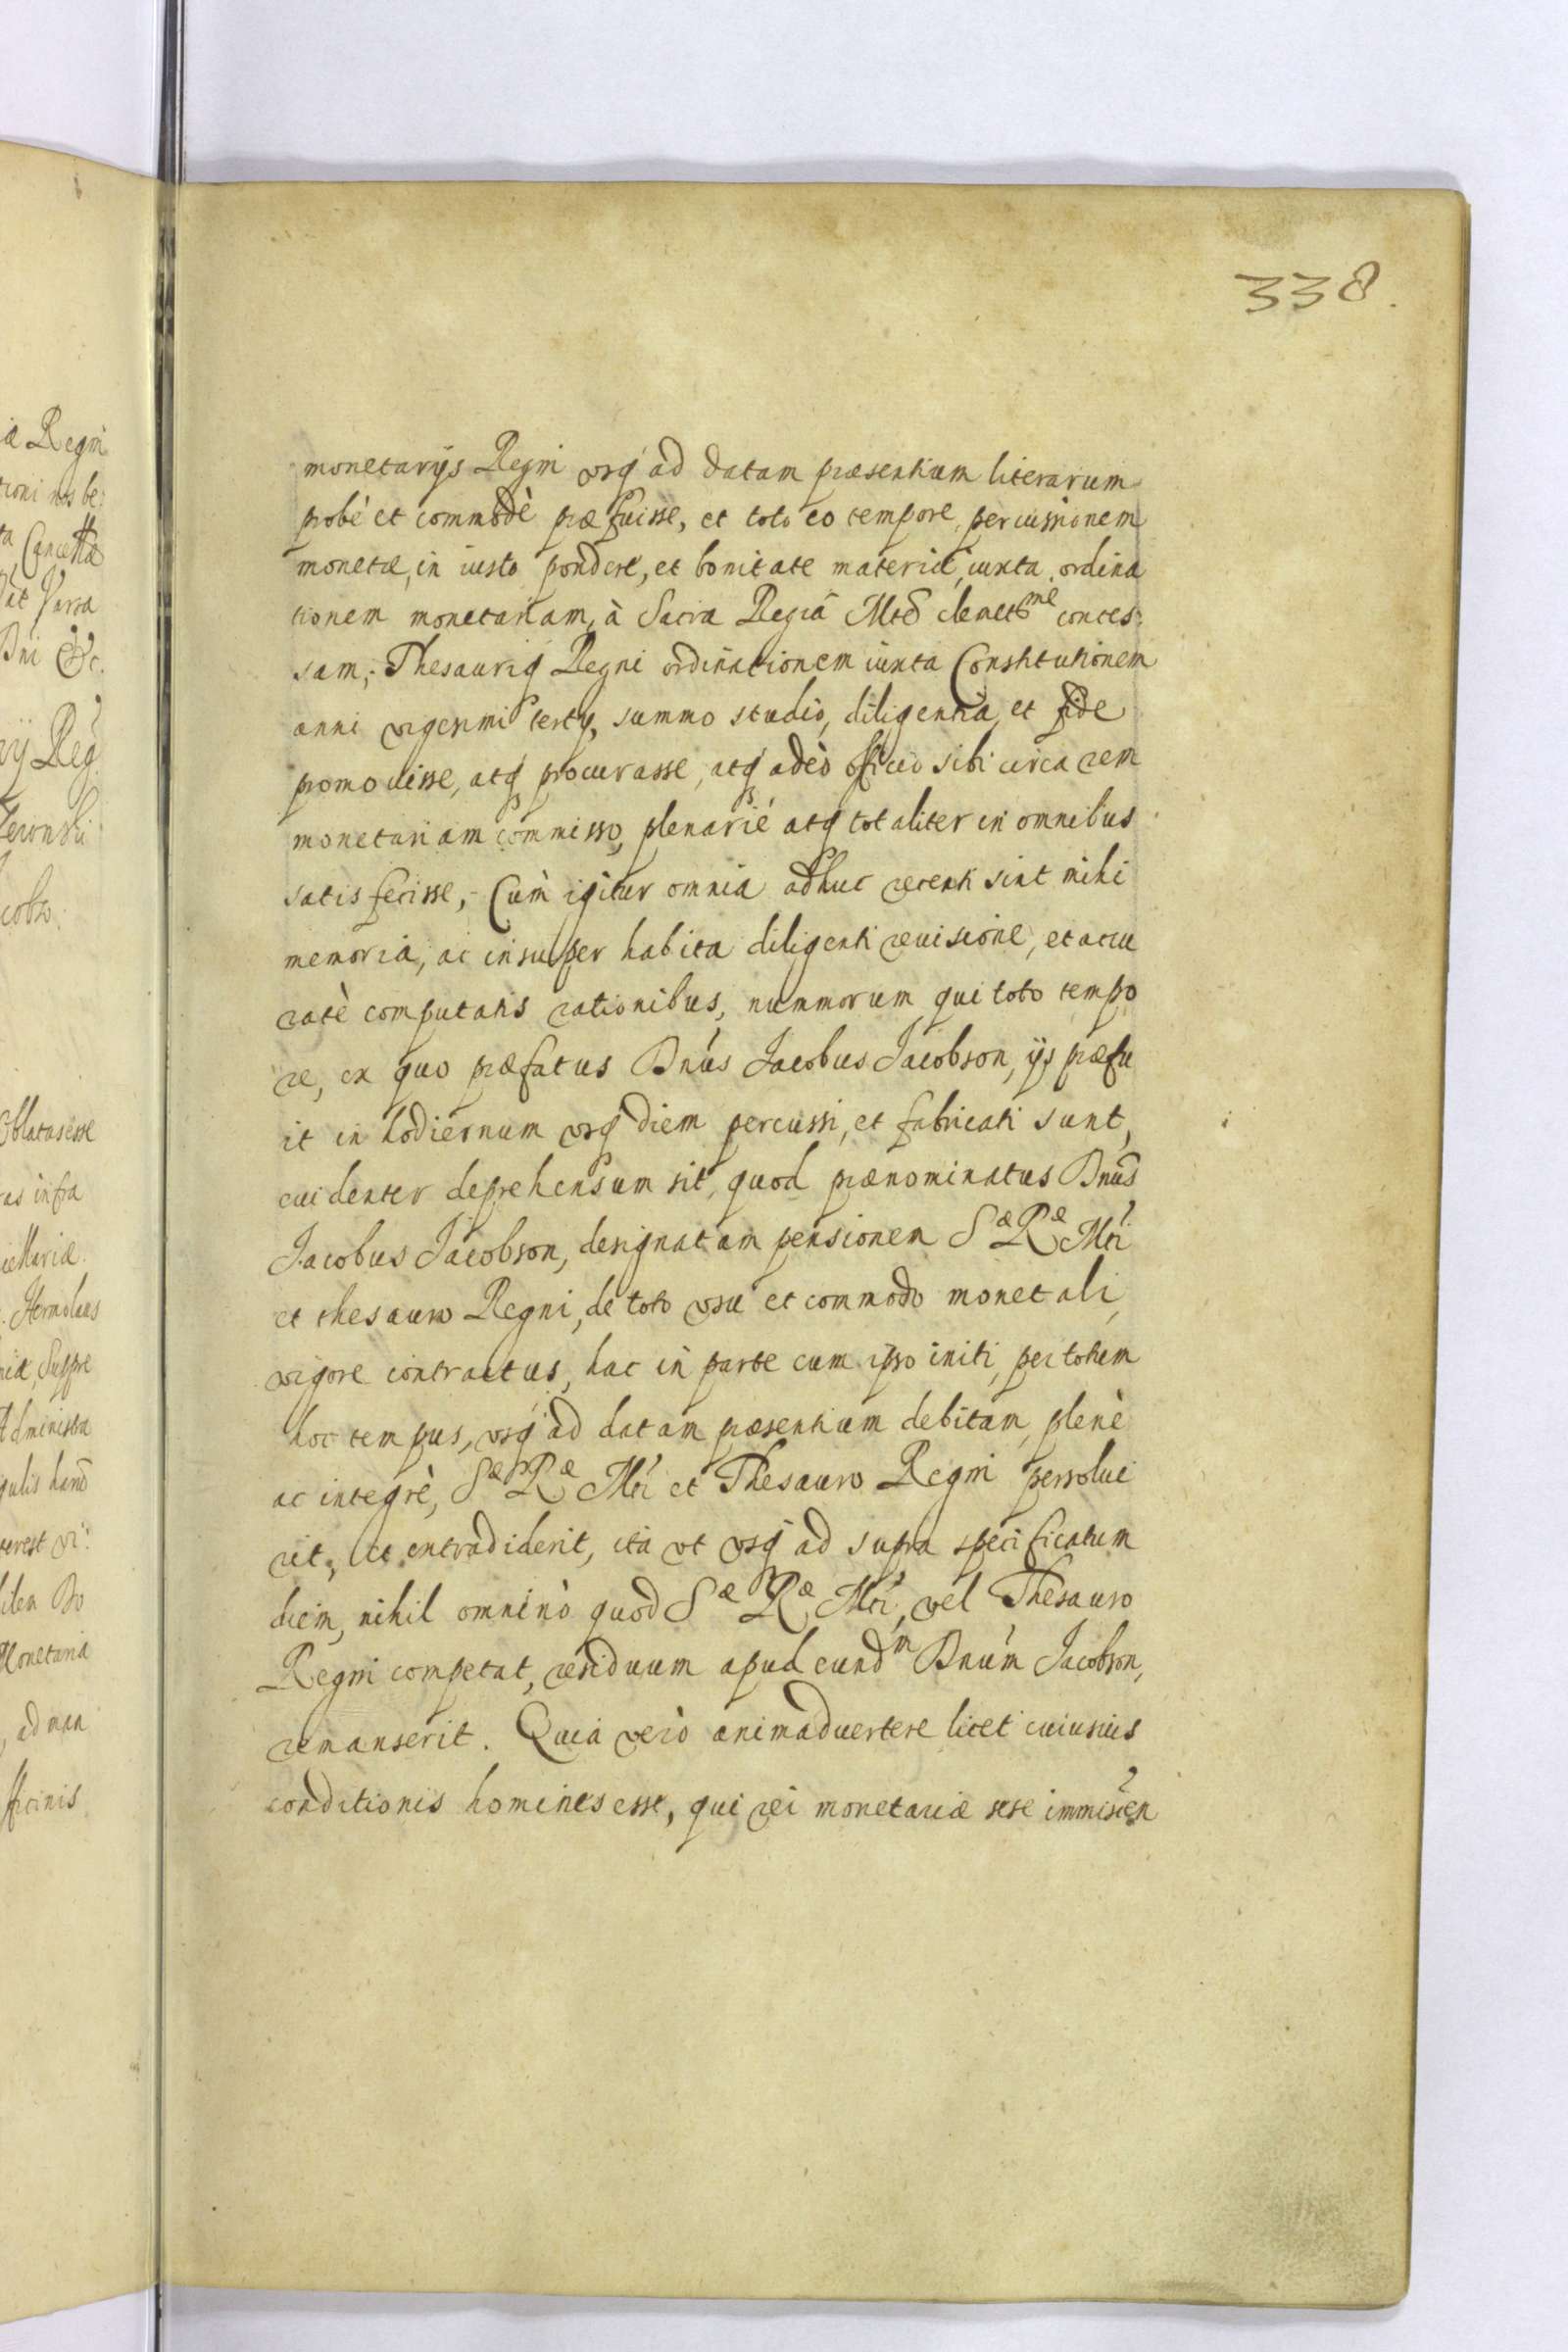 338.
monetarijs Regni usq ad datam præsentium literarum
probè et commodè præfuisse, et toto eo tempore, percussionem
monetæ, in iusto pondere, et bonitate materiæ, iuxta ordina
tionem monetariam, à Sacra Regiâ Mtē clemetme conces:
sam, Thesauriq Regni ordinationem iuxta Constitutionem
anni vigesimi tertij, summo studio, diligentia, et fide
promovisse, atq procurasse, atq adeò officio sibi circa rem
monetariam commisso, plenariè atq totaliter in omnibus
satis fecisse, Cùm igitur omnia adhuc recenti sint mihi
memoria, ac insuper habita diligenti reuisione, et accu
ratè computatis rationibus, nummorum qui toto tempo
re, ex quo præfatus Dnus Jacobus Jacobson, ijs præfu
it in hodiernum vsq diem percussi, et fabricati sunt,
euidenter deprehensum sit, quod prænominatus Dnus
Jacobus Jacobson, designatam pensionem Sæ Ræ Mti
et thesauro Regni, de toto vsu et commodo monetali,
vigore contractus, hac in parte cum ipso initi, per totum
hoc tempus, vsq ad datam præsentium debitam, plenè
ac integrè, Sæ Ræ Mti et Thesauro Regni persolue
rit, et extradiderit, ita vt vsq ad supra specificatum
diem, nihil omninò quod Sæ Ræ Mti, vel Thesauro
Regni competat, residuum apud eundm Dnum Jacobson,
remanserit. Quia verò animaduertere licet cuiusuis
conditionis homines esse, qui rei monetariæ sese immiscen